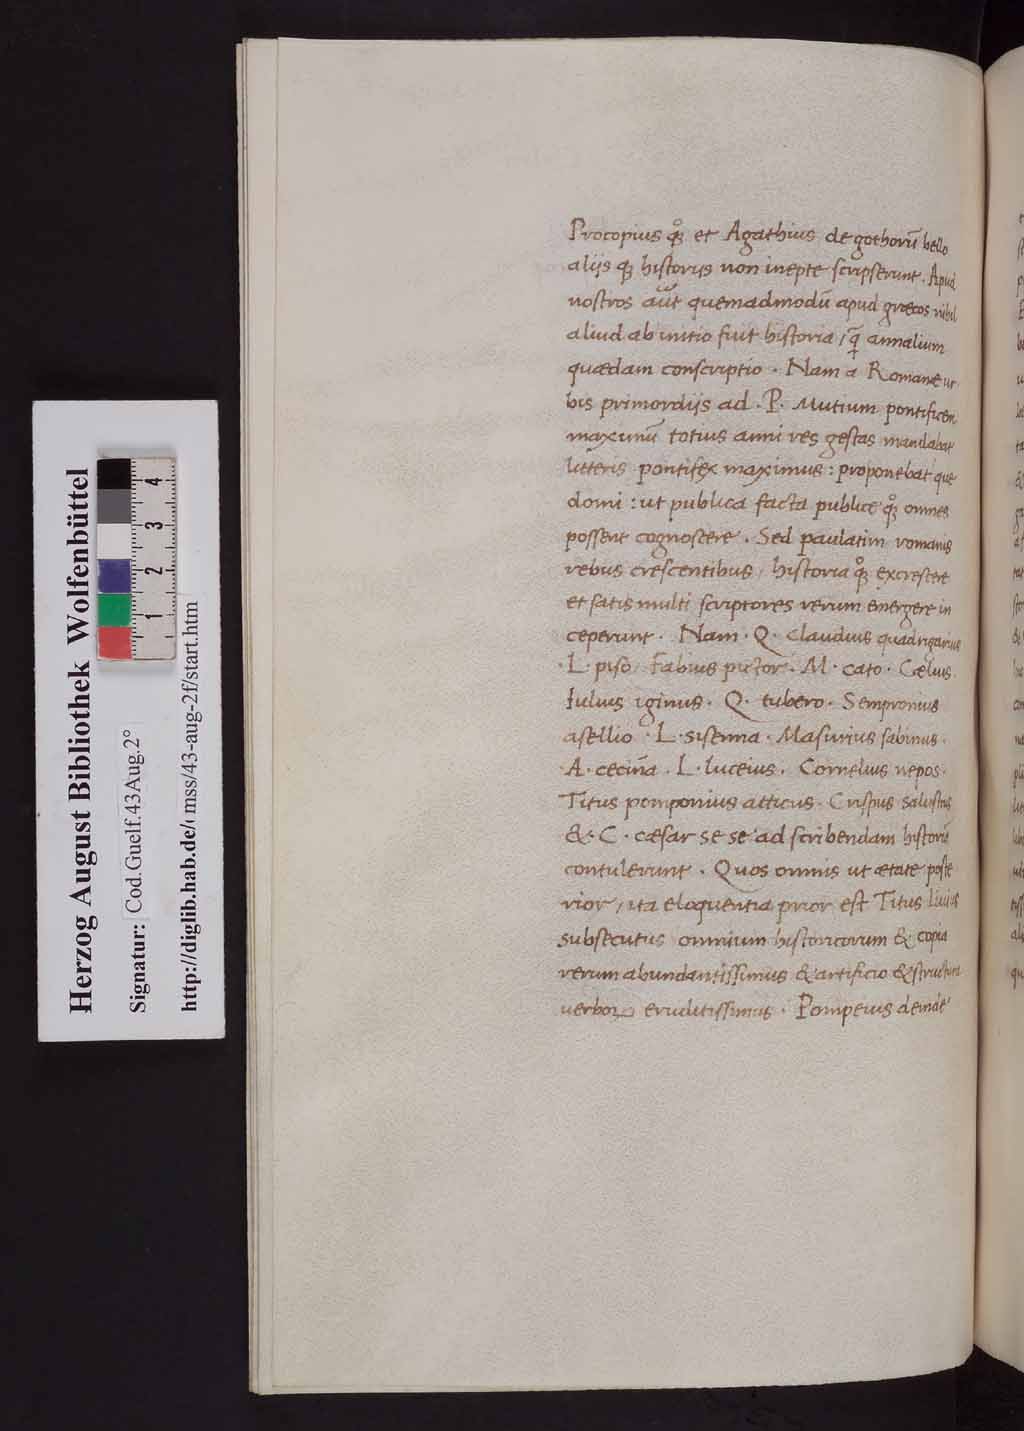 Herzog August Bibliothek Wolfenbüttel
Signatur: Cod.Guelf.43Aug.2°
http://diglib.hab.de/ mss/43-aug-2f/start.htm
4
3
2
1
Procopius qͦꝫ et Agathius de gothorū bello
alijs qꝫ historijs non inepte scripserunt. Apud
nostros aūt quemadmodū apud græcos nihil
aliud ab initio fuit historia / q̄ annalium
quædam conscriptio. Nam a Romane ur
bis primordijs ad. P. Mutium pontificem
maximū totius anni res gestas mandabat
litteris pontifex maximus: proponebat que
domi: ut publica facta publice qͦꝫ omnes
possent cognoscere. Sed paulatim romanis
rebus crescentibus / historia qͦꝫ excrescere
et satis multi scriptores rerum emergere in
ceperunt. Nam. Q. Claudius quadrigarius
.L. piso Fabius pictor. M. cato. Gelius.
Iulius iginus. Q. tubero. Sempronius
asellio. L. sisenna. Masurius sabinus.
.A. cecina. L. luceius. Cornelius nepos.
Titus pomponius atticus. Crispus salustius
&. C. cæsar se se ad scribendam historiā
contulerunt. Quos omnis ut ætate poste
rior / ita eloquentia prior est Titus Liuius
subsecutus omnium historicorum & copia
rerum abundantissimus & artificio & structura
verboꝝ eruditissimus. Pompeius deinde